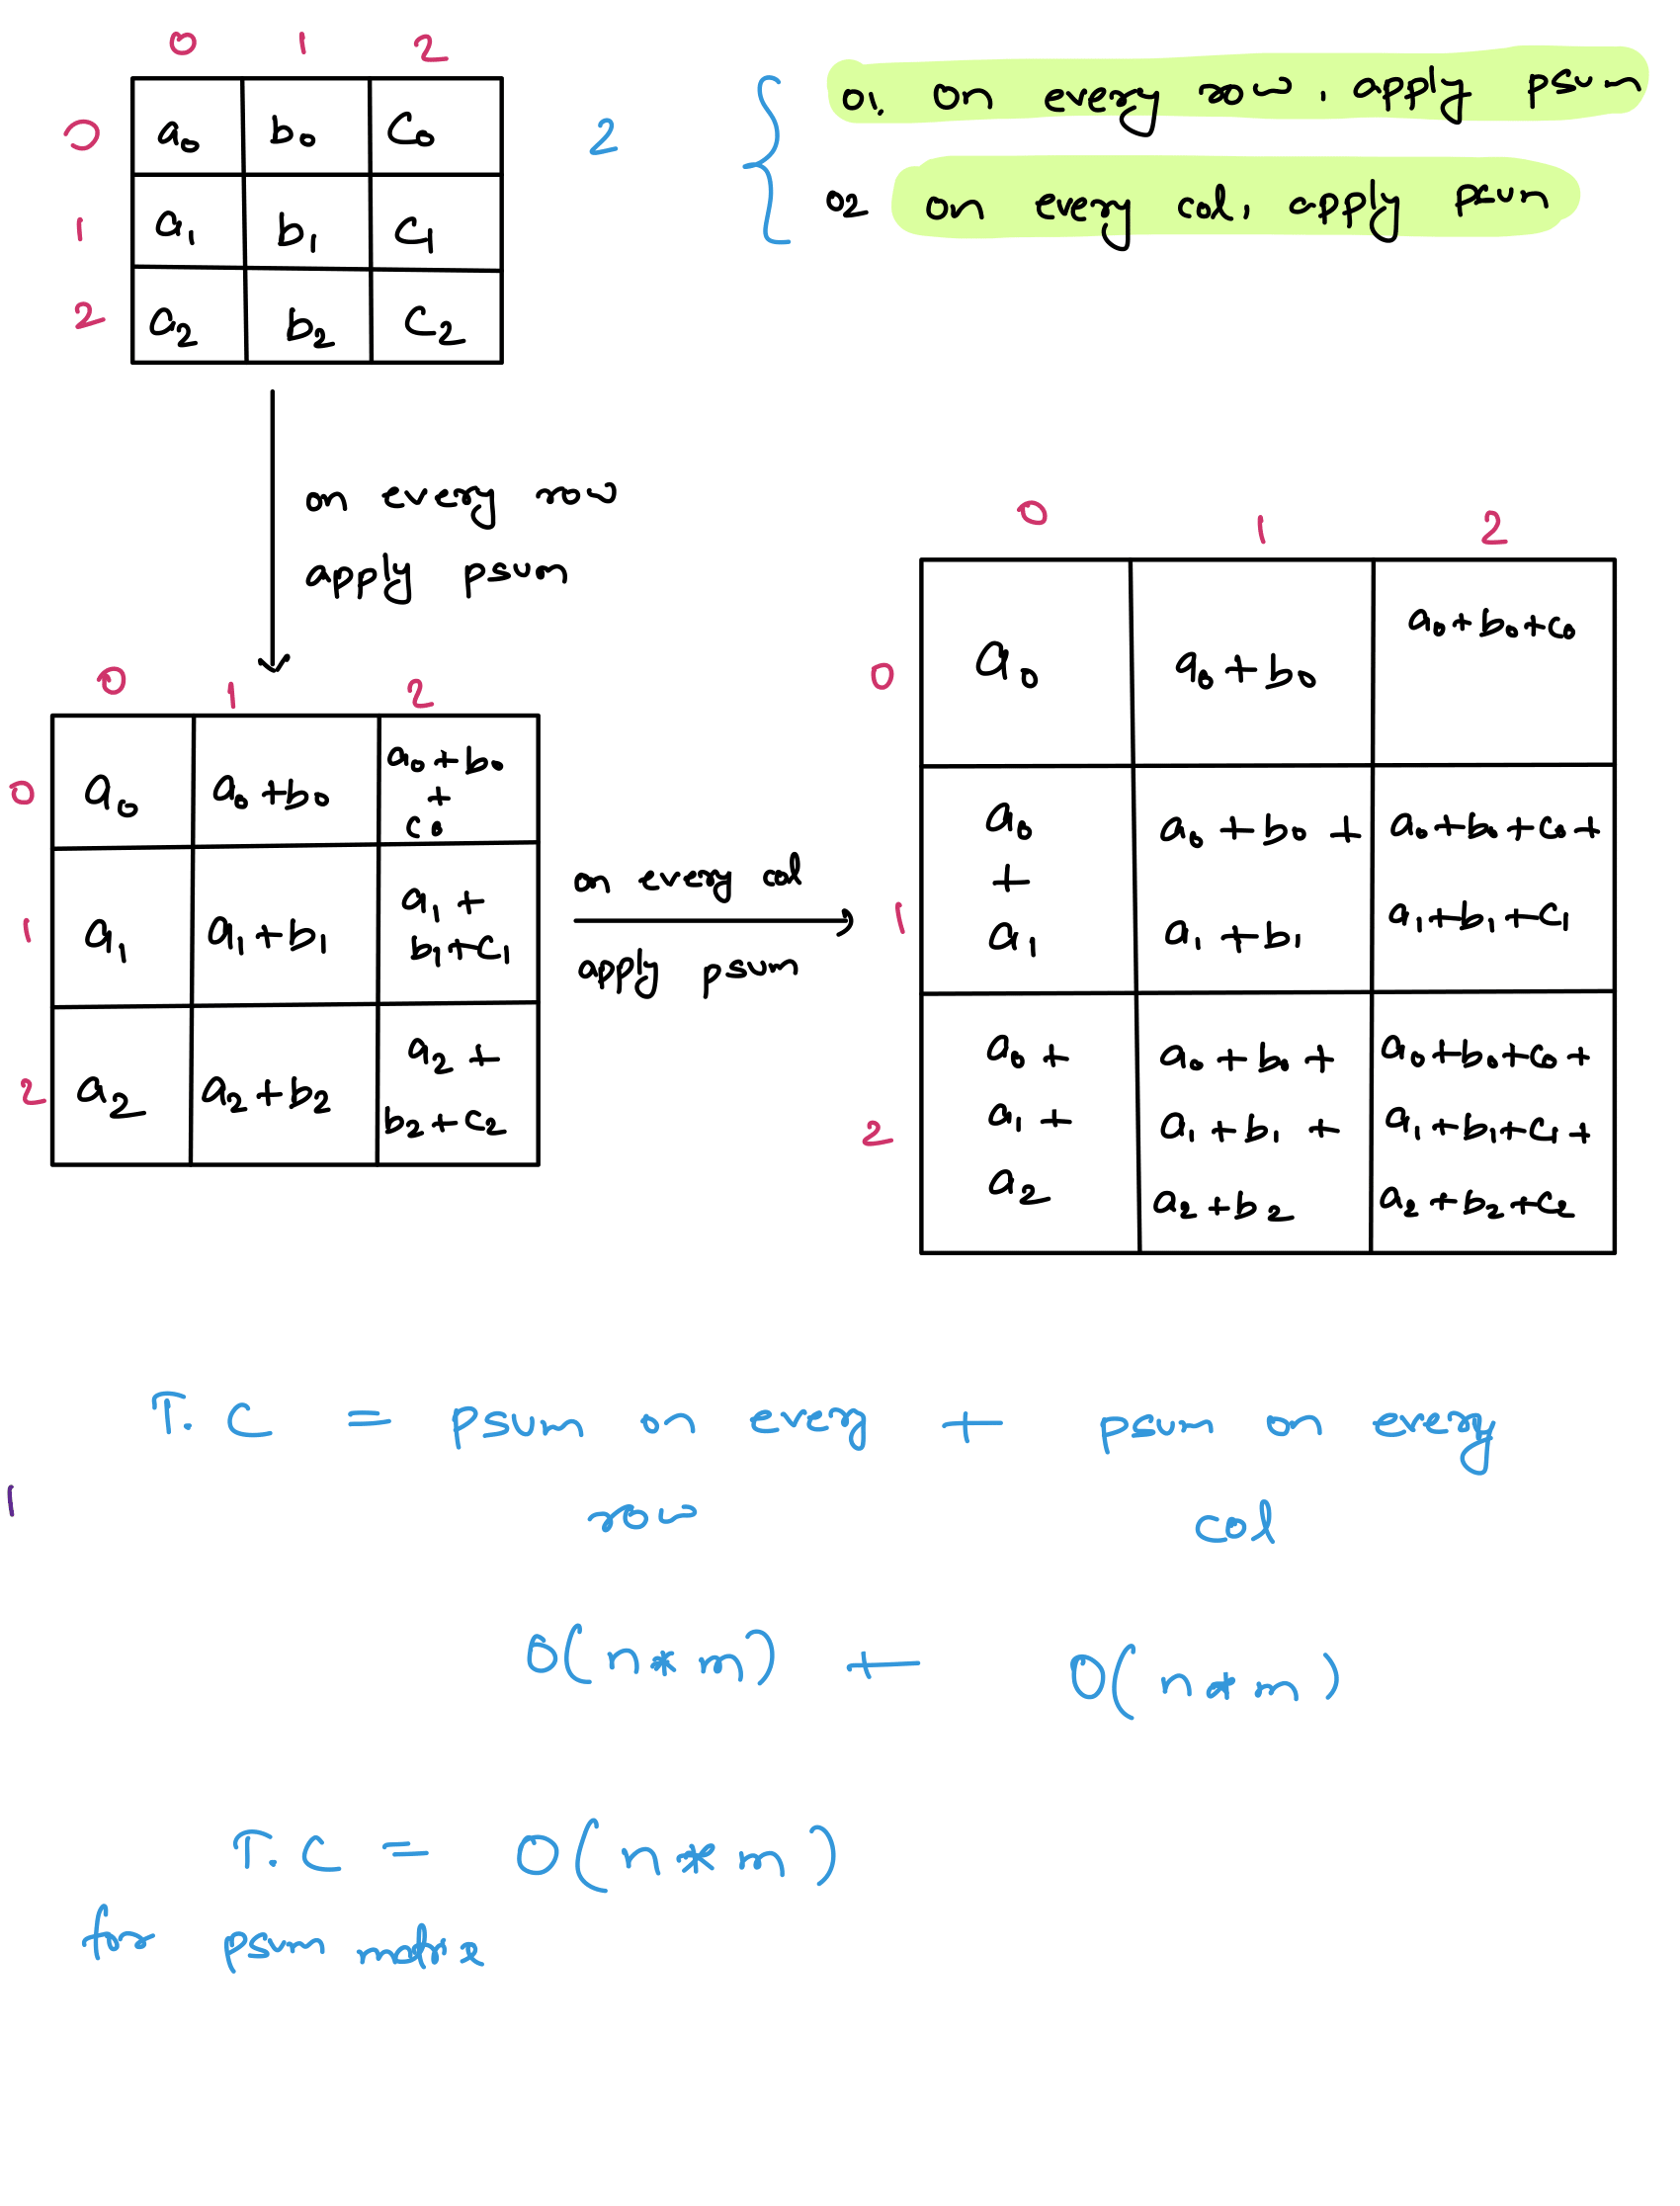 0 1 2
0 a₀ b₀ c₀
1 a₁ b₁ c₁
2 a₂ b₂ c₂
2
01. on every row, apply psum
02 on every col, apply psum
on every row
apply psum
0 1 2
0 a₀ a₀+b₀ a₀+b₀
+
c₀
1 a₁ a₁+b₁ a₁+
b₁+c₁
2 a₂ a₂+b₂ a₂+
b₂+c₂
on every col
apply psum
0 1 2
0 a₀ a₀+b₀ a₀+b₀+c₀
1 a₀ a₀+b₀+ a₀+b₀+c₀+
+
a₁ a₁+b₁ a₁+b₁+c₁
2 a₀+ a₀+b₀+ a₀+b₀+c₀+
a₁+ a₁+b₁+ a₁+b₁+c₁+
a₂ a₂+b₂ a₂+b₂+c₂
T.C = psum on every + psum on every
row col
1
O(n*m) + O(n*m)
T.C = O(n*m)
for psum